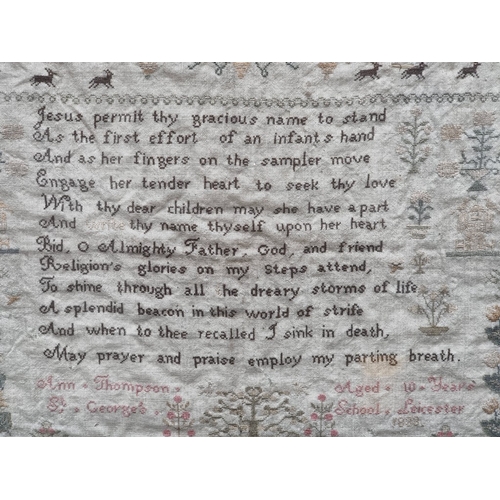 Jesus permit thy gracious name to stand
As the first effort of an infants hand
And as her fingers on the sampler move
Engage her tender heart to seek thy love
With thy dear children may she have a part
And thy name thyself upon her heart
Bid, O Almighty Father, God, and friend
Religion's glories on my steps attend,
To shine through all he dreary storms of life
A splendid beacon in this world of strife
And when to thee recalled I sink in death,
May prayer and praise employ my parting breath.
Ann Thompson. Aged 10 Years
St. George's School, Leicester